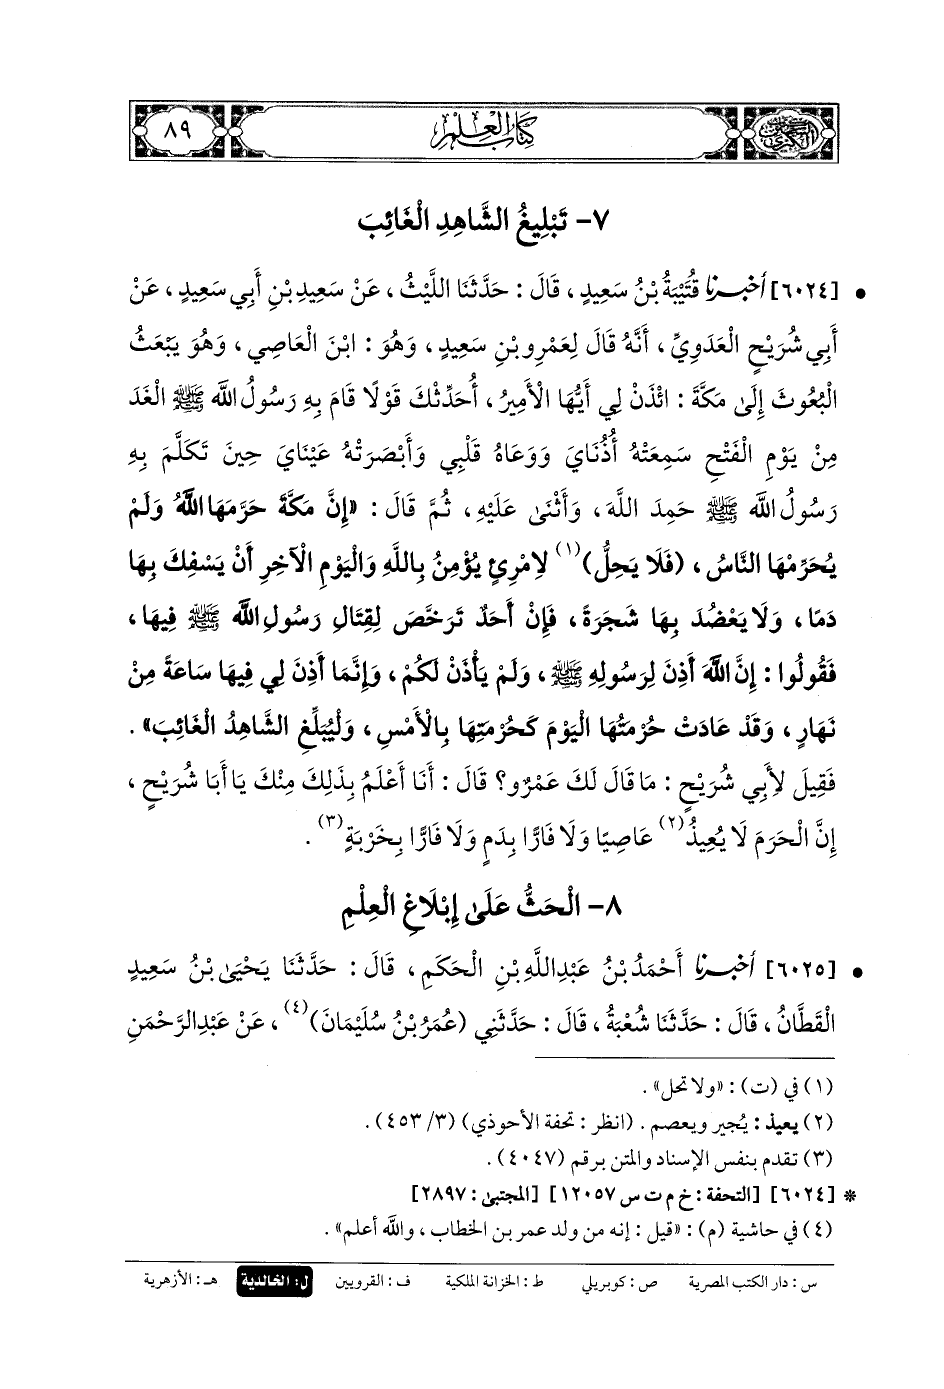 السنن الكبرى
كتاب العلم
٨٩
٧- تَبْلِيغُ الشَّاهِدِ الْغَائِبَ
• [٦٠٢٤] أخبرنا قُتَيْبَةُ بْنُ سَعِيدٍ ، قَالَ : حَدَّثَنَا اللَّيْثُ ، عَنْ سَعِيدِ بْنِ أَبِي سَعِيدٍ ، عَنْ
أَبِي شُرَيْحٍ الْعَدَوِيِّ ، أَنَّهُ قَالَ لِعَمْرِو بْنِ سَعِيدٍ ، وَهُوَ : ابْنَ الْعَاصِي ، وَهُوَ يَبْعَثُ
الْبُعُوثَ إِلَى مَكَّةَ : ائْذَنْ لِي أَيُّهَا الْأَمِيرُ ، أُحَدِّثْكَ قَوْلًا قَامَ بِهِ رَسُولُ اللَّه ﷺ الْغَدَ
مِنْ يَوْمِ الْفَتْحِ سَمِعَتْهُ أُذُنَايَ وَوَعَاهُ قَلْبِي وَأَبْصَرَتْهُ عَيْنَايَ حِينَ تَكَلَّمَ بِهِ
رَسُولُ اللَّه ﷺ حَمِدَ اللَّهَ ، وَأَثْنَى عَلَيْهِ ، ثُمَّ قَالَ : «إِنَّ مَكَّةَ حَرَّمَهَا اللَّهُ وَلَمْ
يُحَرِّمْهَا النَّاسُ ، (فَلَا يَحِلُّ)(١) لِامْرِئٍ يُؤْمِنُ بِاللَّهِ وَالْيَوْمِ الْآخِرِ أَنْ يَسْفِكَ بِهَا
دَمًا ، وَلَا يَعْضُدَ بِهَا شَجَرَةً ، فَإِنْ أَحَدٌ تَرَخَّصَ لِقِتَالِ رَسُولِ اللَّه ﷺ فِيهَا ،
فَقُولُوا : إِنَّ اللَّهَ أَذِنَ لِرَسُولِهِ ﷺ ، وَلَمْ يَأْذَنْ لَكُمْ ، وَإِنَّمَا أَذِنَ لِي فِيهَا سَاعَةً مِنْ
نَهَارٍ ، وَقَدْ عَادَتْ حُرْمَتُهَا الْيَوْمَ كَحُرْمَتِهَا بِالْأَمْسِ ، وَلْيُبَلِّغِ الشَّاهِدُ الْغَائِبَ» .
فَقِيلَ لِأَبِي شُرَيْحٍ : مَا قَالَ لَكَ عَمْرٌو؟ قَالَ : أَنَا أَعْلَمُ بِذَلِكَ مِنْكَ يَا أَبَا شُرَيْحٍ ،
إِنَّ الْحَرَمَ لَا يُعِيذُ(٢) عَاصِيًا وَلَا فَارًّا بِدَمٍ وَلَا فَارًّا بِخَرْبَةٍ(٣) .
٨- الْحَثُّ عَلَى إِبْلَاغِ الْعِلْمِ
• [٦٠٢٥] أخبرنا أَحْمَدُ بْنُ عَبْدِ اللَّهِ بْنِ الْحَكَمِ ، قَالَ : حَدَّثَنَا يَحْيَى بْنُ سَعِيدٍ
الْقَطَّانُ ، قَالَ : حَدَّثَنَا شُعْبَةُ ، قَالَ : حَدَّثَنِي (عُمَرُ بْنُ سُلَيْمَانَ)(٤) ، عَنْ عَبْدِ الرَّحْمَنِ
(١) في (ت) : «ولا تحل» .
(٢) يعيذ : يُجير ويعصم . (انظر : تحفة الأحوذي) (٣/ ٤٥٣) .
(٣) تقدم بنفس الإسناد والمتن برقم (٤٠٤٧) .
* [٦٠٢٤] [التحفة : خ م ت س ١٢٠٥٧] [المجتبى : ٢٨٩٧]
(٤) في حاشية (م) : «قيل : إنه من ولد عمر بن الخطاب ، والله أعلم» .
س : دار الكتب المصرية ص : كوبريلي ط : الخزانة الملكية ف : القرويين ل : الخالدية هـ : الأزهرية